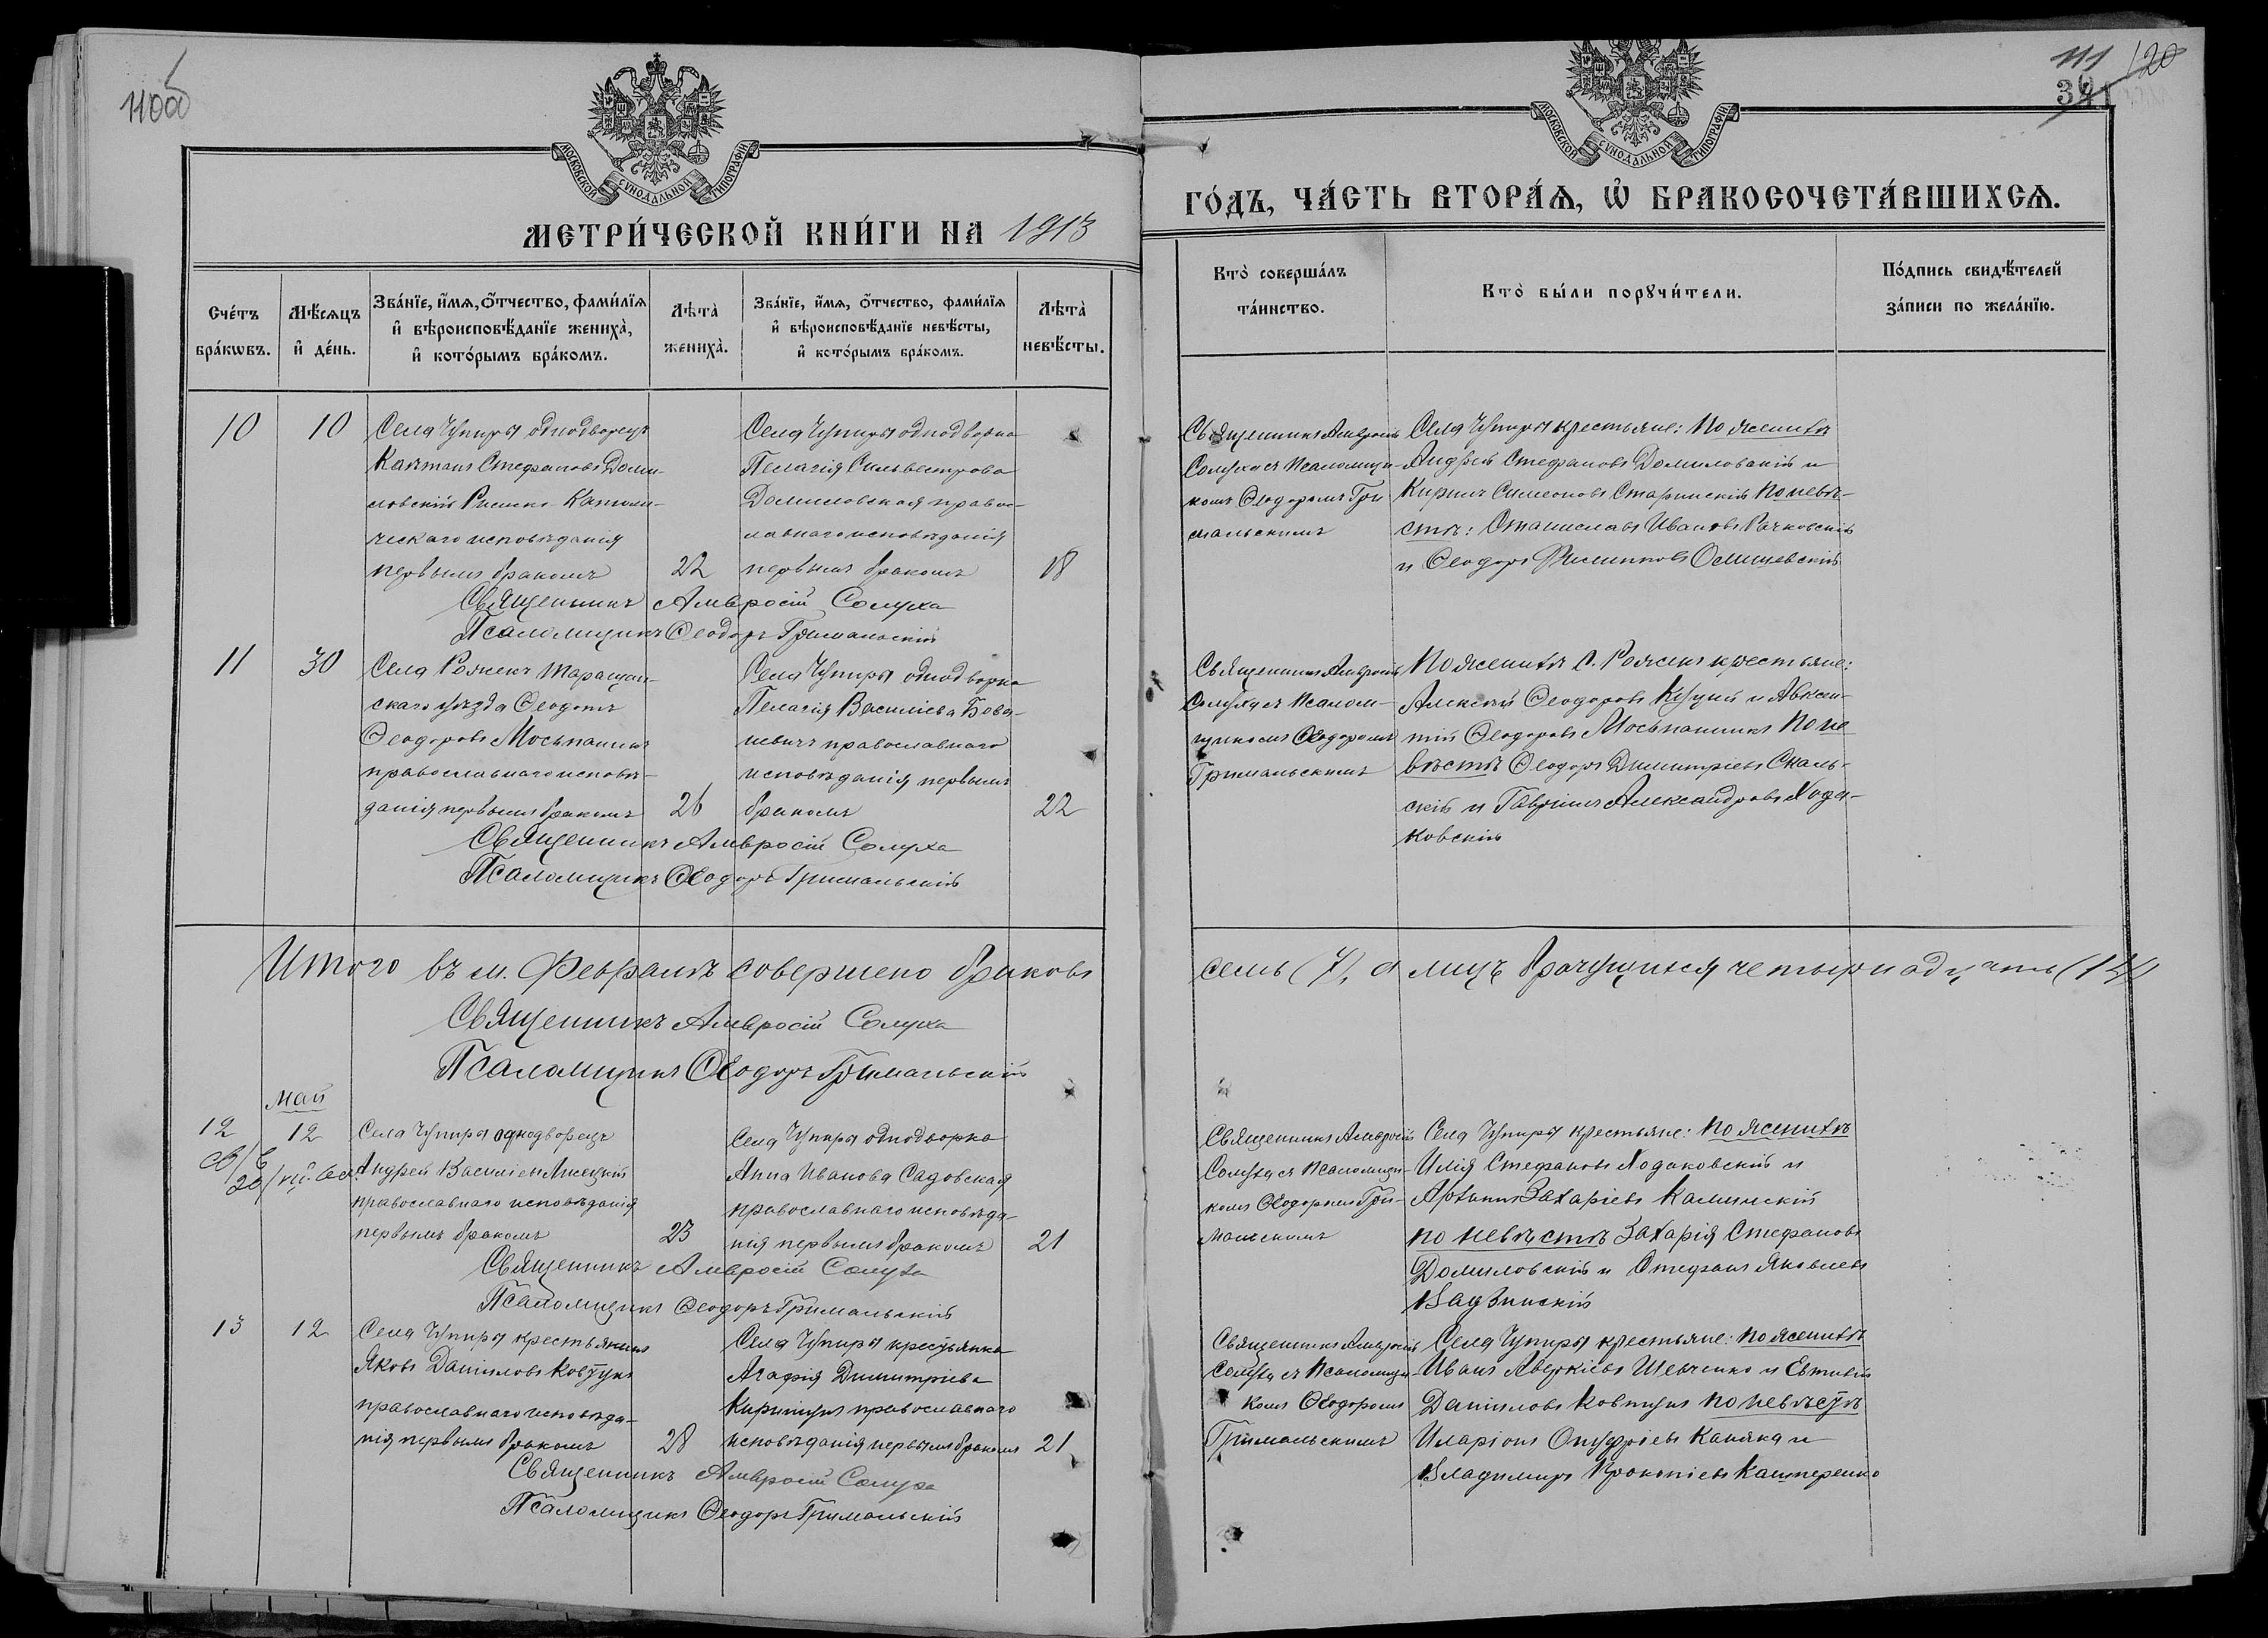 110об
МОСКОВСКОЙ СѴНОДАЛЬНОЙ ТИПОГРАФІИ
МЕТРИ́ЧЕСКОЙ КНИ́ГИ НА 1913
Сче́тъ бра́кѡвъ.
Мѣ́сяцъ и҆ де́нь.
Зва́нїе, и҆́мя, ѻ҆́тчество, фами́лїя
и҆ вѣроисповѣ́данїе жениха̀,
и҆ кото́рымъ бра́комъ.
Лѣта̀ жениха̀.
Зва́нїе, и҆́мя, ѻ҆́тчество, фами́лїя
и҆ вѣроисповѣ́данїе невѣ́сты,
и҆ кото́рымъ бра́комъ.
Лѣта̀ невѣ́сты.
10
10
Села Чупиры однодворецъ
Каэтанъ Стефановъ Доми-
ловскій Римско-Католи-
ческаго исповѣданія
первымъ бракомъ
22
Села Чупиры однодворка
Пелагія Сильвестрова
Домиловская правос-
лавнаго исповѣданія
первымъ бракомъ
18
Священникъ Амвросій Солуха
Псаломщикъ Ѳеодоръ Гримальскій
11
30
Села Рожекъ Таращан-
скаго уѣзда Ѳеодотъ
Ѳеодоровъ Моськаликъ
православнаго исповѣ-
данія первымъ бракомъ
26
Села Чупиры однодворка
Пелагія Василіева Бова-
невичъ православнаго
исповѣданія первымъ
бракомъ
22
Священникъ Амвросій Солуха
Псаломщикъ Ѳеодоръ Гримальскій
Итого въ м. Февралѣ совершено браковъ
Священникъ Амвросій Солуха
Псаломщикъ Ѳеодоръ Гримальскій
Май
12
12
Села Чупиры однодворецъ
Андрей Василіевъ Лисецкій
православнаго исповѣданія
первымъ бракомъ
23
Села Чупиры однодворка
Анна Иванова Садовская
православнаго исповѣда-
нія первымъ бракомъ
21
Священникъ Амвросій Солуха
Псаломщикъ Ѳеодоръ Гримальскій
13
12
Села Чупиры крестьянинъ
Яковъ Даніиловъ Ковтунъ
православнаго исповѣда-
нія первымъ бракомъ
28
Села Чупиры крестьянка
Агафія Димитріева
православнаго
исповѣданія первымъ бракомъ
21
Священникъ Амвросій Солуха
Псаломщикъ Ѳеодоръ Гримальскій
111
120
МОСКОВСКОЙ СѴНОДАЛЬНОЙ ТИПОГРАФІИ
ГО́ДЪ, ЧА́СТЬ ВТОРА́Я, Ѡ҆ БРАКОСОЧЕТА́ВШИХСЯ.
Кто̀ соверша́лъ
та́инство.
Кто̀ бы́ли порꙋчи́тели.
По́дпись свидѣ́телей
за́писи по жела́нїю.
Священникъ Амвросій
Солуха съ Псаломщи-
комъ Ѳеодоромъ Гри-
мальскимъ
Села Чупиры крестьяне: по женихѣ
Андрей Стефановъ Домиловскій и
Кирилъ Симеоновъ Старинскій по невѣ-
стѣ: Станиславъ Ивановъ Рачковскій
и Ѳеодоръ Филиповъ Олишевскій
Священникъ Амвросій
Солуха съ Псалом-
щикомъ Ѳеодоромъ
Гримальскимъ
По женихѣ с. Рожекъ крестьяне:
Алексѣй Ѳеодоровъ Куцый и Авксен-
тій Ѳеодоровъ Моськаликъ По не
вѣстѣ Ѳеодоръ Димитріевъ Скаль-
скій и Гавріилъ Александровъ Хода-
ковскій
семь (7), а лицъ брачущихся четырнадцать (14)
Священникъ Амвросій
Солуха съ Псаломщи-
комъ Ѳеодоромъ Гри-
мальскимъ
Села Чупиры крестьяне: по женихѣ
Илія Стефановъ Ходаковскій и
Артемъ Захаріевъ Калинскій
по невѣстѣ Захарія Стефановъ
Домиловскій и Стефанъ Яковлевъ
Вадзинскій
Священникъ Амвросій
Солуха съ Псаломщи-
комъ Ѳеодоромъ
Гримальскимъ
Села Чупиры крестьяне: по женихѣ
Иванъ Аверкіевъ Шевченко и Евтихій
Даніиловъ Ковтунъ по невѣстѣ
Иларіонъ Онуфріевъ Каняка и
Владимиръ Прокопіевъ Кашперенко